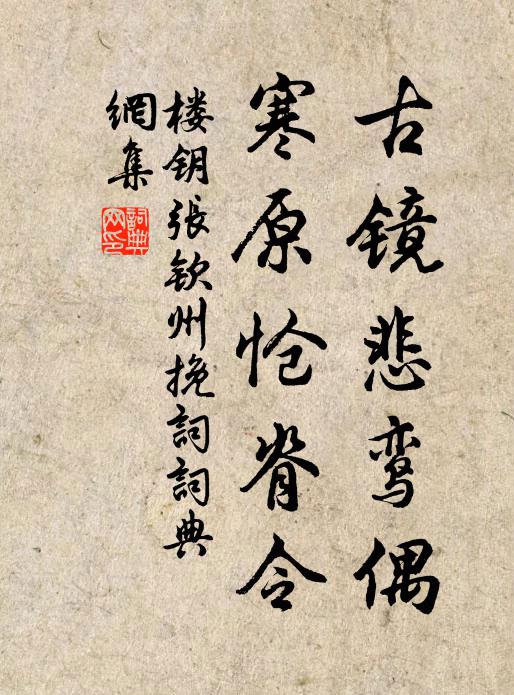 古镜悲鸾偶
寒原怆脊令
楼钥张钦州挽詞詞典
網集
詞典
网印